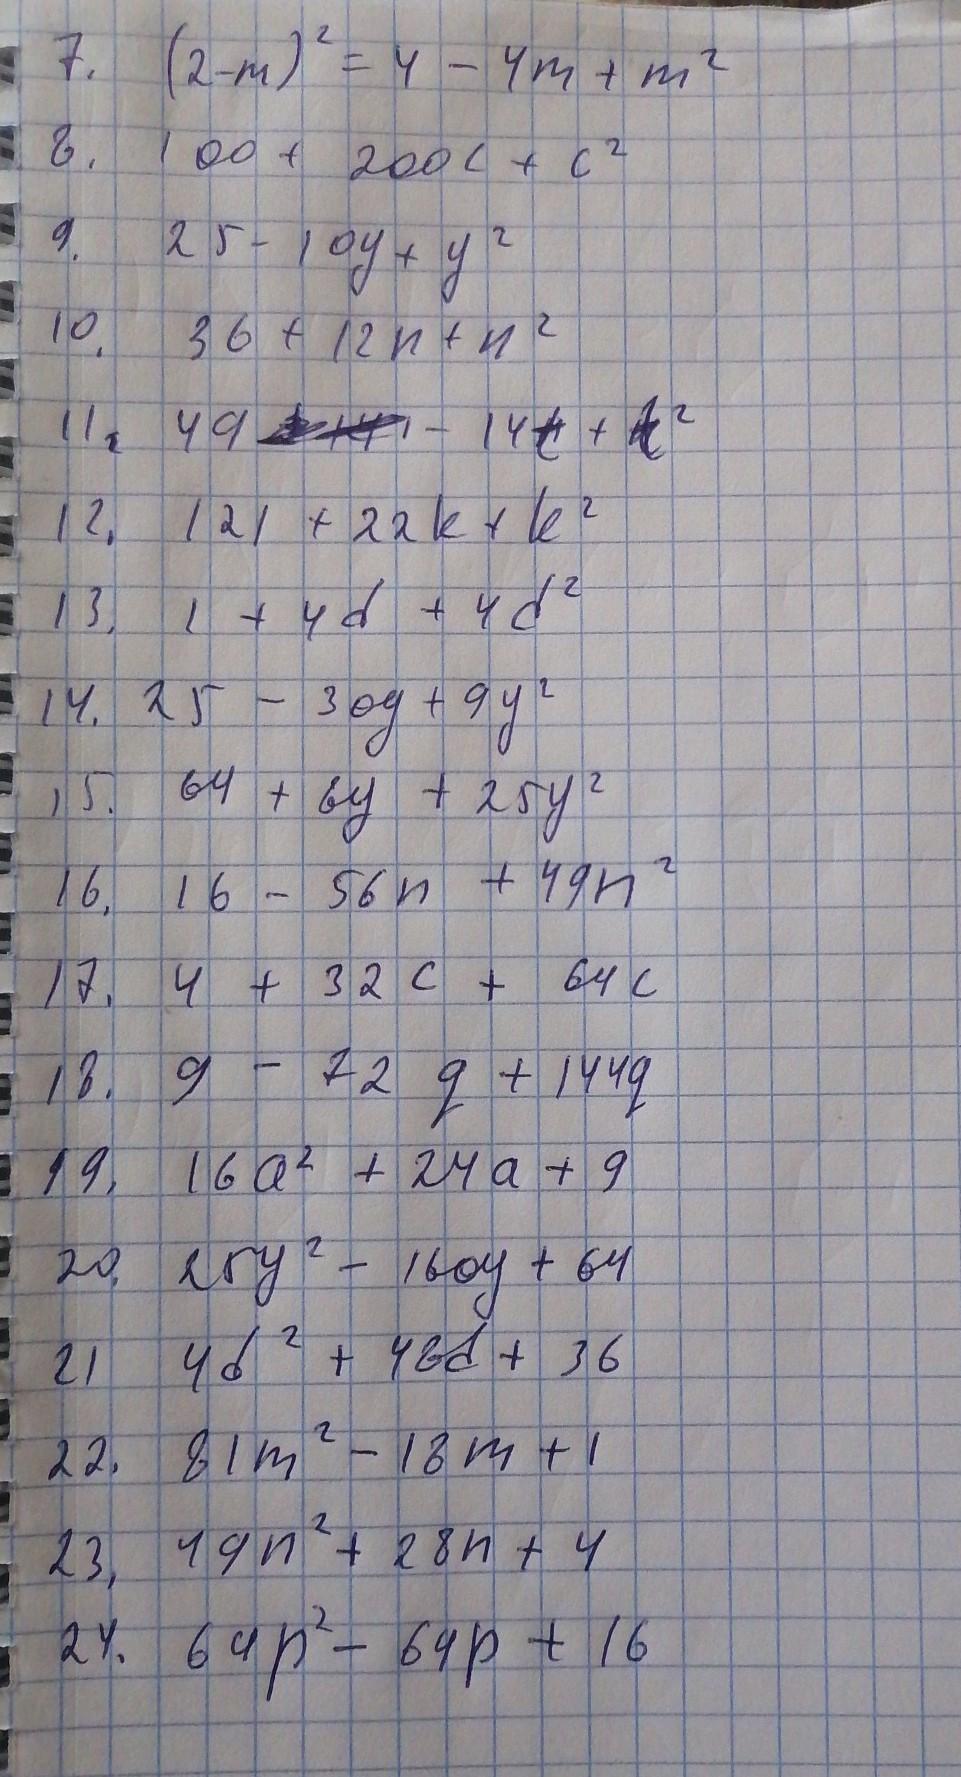 7. (2-m)² = 4 - 4m + m²
8. 100 + 200c + c²
9. 25 - 10y + y²
10. 36 + 12n + n²
11. 49 - 14t + t²
12. 121 + 22k + k²
13. 1 + 4d + 4d²
14. 25 - 30y + 9y²
15. 64 + 8y + 25y²
16. 16 - 56n + 49n²
17. 4 + 32c + 64c
18. 9 - 72q + 144q
19. 16a² + 24a + 9
20. 25y² - 160y + 64
21 4d² + 48d + 36
22. 81m² - 18m + 1
23. 49n² + 28n + 4
24. 64p² - 64p + 16